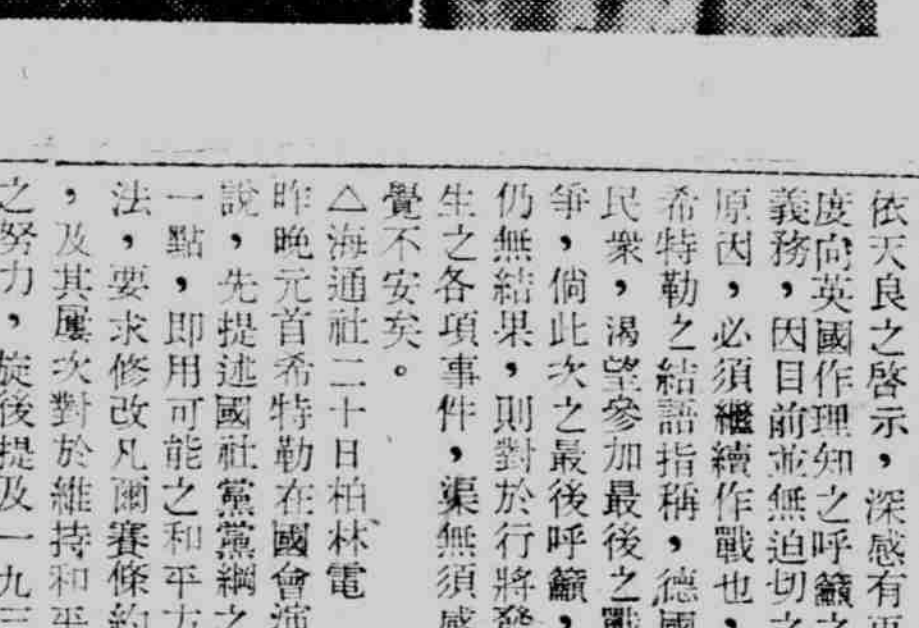 依天良之啓示，深感有再
度向英國作理知之呼籲之
義務，因目前並無迫切之
原因，必須繼續作戰也，
希特勒之結語指稱，德國
民衆，渴望參加最後之戰
爭，倘此次之最後呼籲，
仍無結果，則對於行將發
生之各項事件，渠無須感
覺不安矣。
△海通社二十日柏林電
昨晚元首希特勒在國會演
說，先提述國社黨黨綱之
一點，即用可能之和平方
法，要求修改凡爾賽條約
，及其屢次對於維持和平
之努力，旋後提及一九三